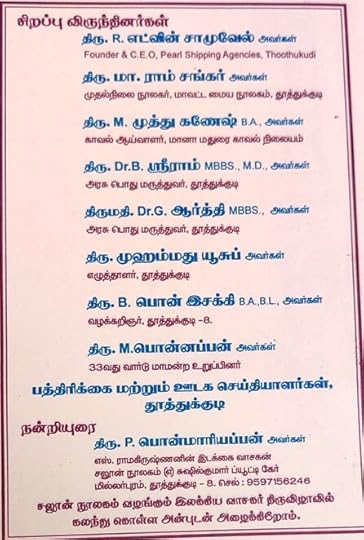 சிறப்பு விருந்தினர்கள்
திரு. R. எட்வின் சாமுவேல் அவர்கள்
Founder & C.E.O, Pearl Shipping Agencies, Thoothukudi
திரு. மா. ராம் சங்கர் அவர்கள்
முதல்நிலை நூலகர், மாவட்ட மைய நூலகம், தூத்துக்குடி
திரு. M. முத்து கணேஷ் B.A., அவர்கள்
காவல் ஆய்வாளர், மானா மதுரை காவல் நிலையம்
திரு. Dr.B. ஸ்ரீராம் MBBS., M.D., அவர்கள்
அரசு பொது மருத்துவர், தூத்துக்குடி
திருமதி. Dr.G. ஆர்த்தி MBBS., அவர்கள்
அரசு பொது மருத்துவர், தூத்துக்குடி
திரு. முஹம்மது யூசுப் அவர்கள்
எழுத்தாளர், தூத்துக்குடி
திரு. B. பொன் இசக்கி B.A.,B.L., அவர்கள்
வழக்கறிஞர், தூத்துக்குடி -8.
திரு. M.பொன்னப்பன் அவர்கள்
33வது வார்டு மாமன்ற உறுப்பினர்
பத்திரிக்கை மற்றும் ஊடக செய்தியாளர்கள்,
தூத்துக்குடி
நன்றியுரை
திரு. P. பொன்மாரியப்பன் அவர்கள்
எஸ். ராமகிருஷ்ணனின் இடக்கை வாசகன்
சலூன் நூலகம் (ஏ) சுஷில்குமார் ப்யூட்டி கேர்
மில்லர்புரம், தூத்துக்குடி - 8. செல் : 9597156246
சலூன் நூலகம் வழங்கும் இலக்கிய வாசகர் திருவிழாவில்
கலந்து கொள்ள அன்புடன் அழைக்கிறோம்.